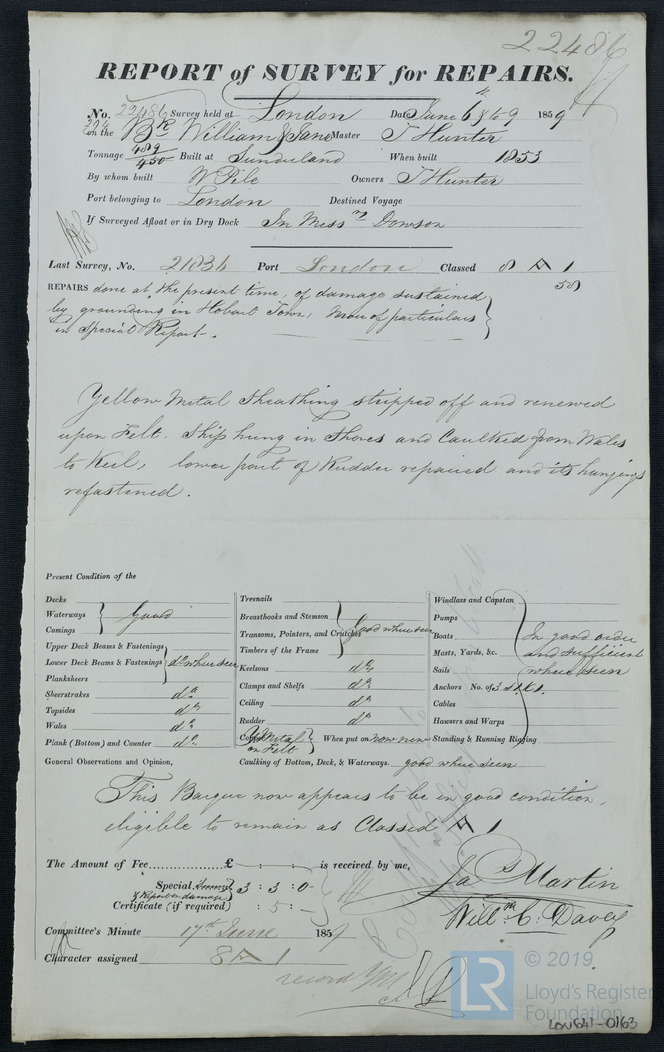 22486
REPORT of SURVEY for REPAIRS.
No. 22486 Survey held at London Date June 6 & 9 1859
on the Bk William & Jane Master T Hunter
Tonnage 489/450 Built at Sunderland When built 1853
By whom built W Pile Owners T Hunter
Port belonging to London Destined Voyage
If Surveyed Afloat or in Dry Dock In Messrs Dowson
Last Survey, No. 21836 Port London Classed 8 A 1
58
REPAIRS done at the present time, of damage sustained
by grounding in Hobart Town, more of particulars
in Special Report.
Yellow Metal Sheathing stripped off and renewed
upon Felt. Ship hung in Shores and Caulked from Wales
to Keel, lower part of Rudder repaired and its hangings
refastened.
Present Condition of the
Decks
Waterways } Good
Comings
Upper Deck Beams & Fastenings
Lower Deck Beams & Fastenings } do where seen
Planksheers
Sheerstrakes do
Topsides do
Wales do
Plank (Bottom) and Counter do
Treenails
Breasthooks and Stemson
Transoms, Pointers, and Crutches } Good where seen
Timbers of the Frame
Keelsons do
Clamps and Shelfs do
Ceiling do
Rudder do
Copper Y Metal on Felt } When put on now new
Windlass and Capstan
Pumps
Boats In good order
Masts, Yards, &c. and sufficient
Sails where seen
Anchors No. of 3
Cables
Hawsers and Warps
Standing & Running Rigging
General Observations and Opinion, Caulking of Bottom, Deck, & Waterways. good where seen
This Barque now appears to be in good condition,
eligible to remain as Classed A 1
The Amount of Fee............... £ : : is received by me,
Special & Report on damage } 3 : 3 : 0
Certificate (if required) : 5 :
Jas Martin
Willm. C. Davey
Committee's Minute 17th June 1859
Character assigned 8 A 1
record
LR © 2019
Lloyd's Register
Foundation
LON641-0163